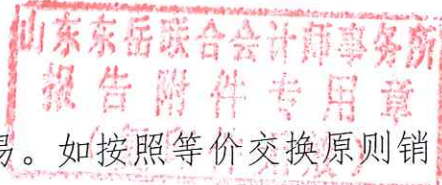 山东东岳联合会计师事务所
报告附件专用章
易。如按照等价交换原则销